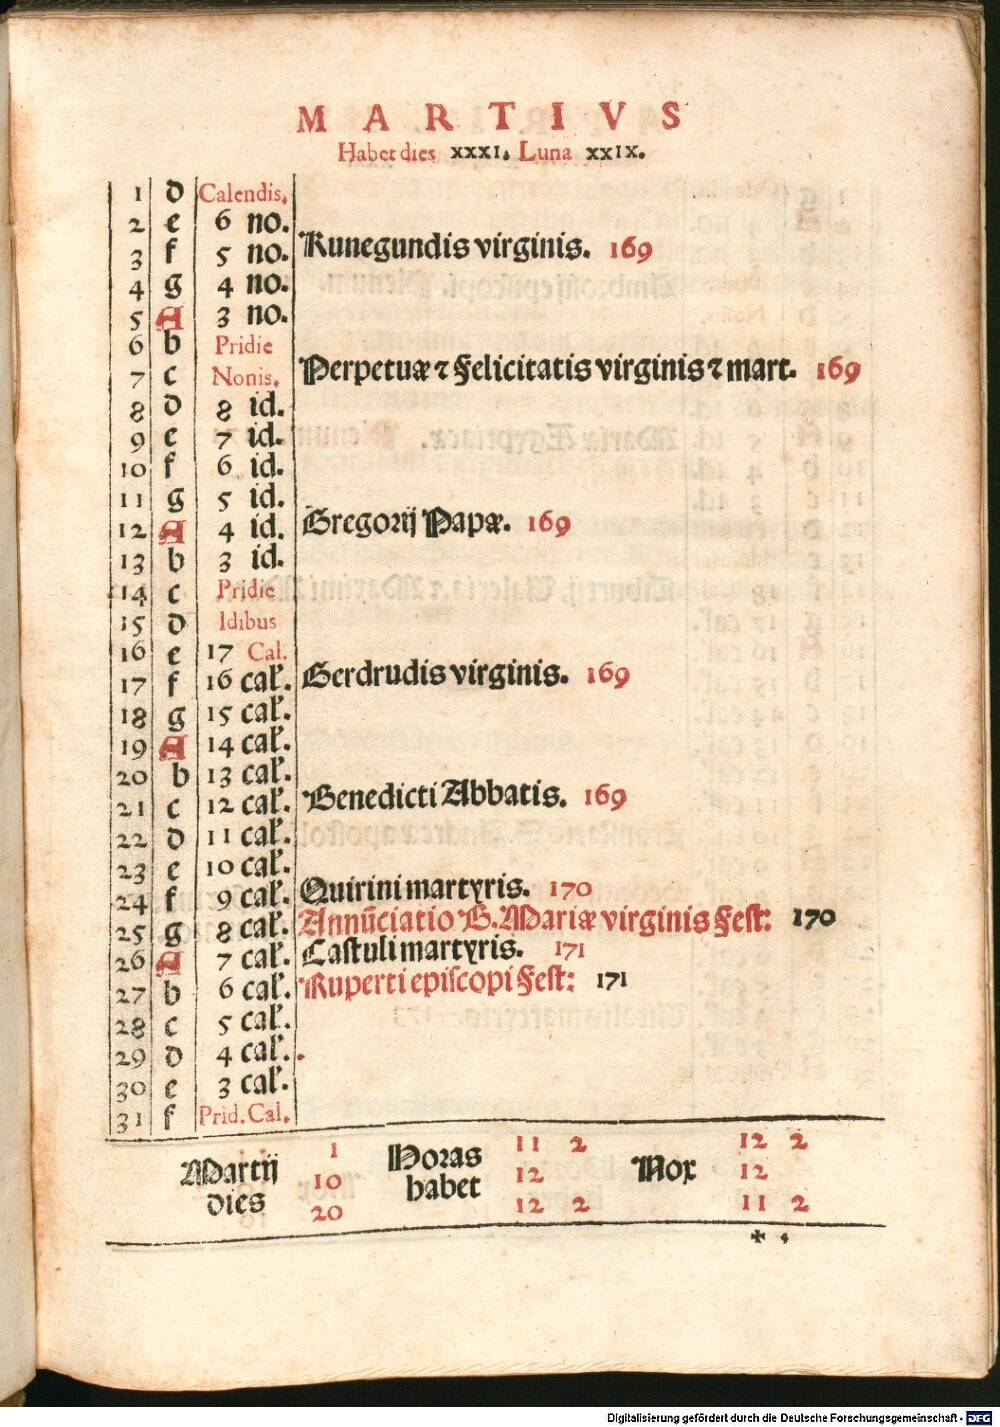 MARTIVS
Habet dies XXXI. Luna XXIX.
1 d Calendis.
2 e 6 no.
3 f 5 no. Kunegundis virginis. 169
4 g 4 no.
5 A 3 no.
6 b Pridie
7 c Nonis. Perpetuæ ⁊ Felicitatis virginis ⁊ mart. 169
8 d 8 id.
9 e 7 id.
10 f 6 id.
11 g 5 id.
12 A 4 id. Gregorij Papæ. 169
13 b 3 id.
14 c Pridie
15 d Idibus
16 e 17 Cal.
17 f 16 cal. Gerdrudis virginis. 169
18 g 15 cal.
19 A 14 cal.
20 b 13 cal.
21 c 12 cal. Benedicti Abbatis. 169
22 d 11 cal.
23 e 10 cal.
24 f 9 cal. Quirini martyris. 170
25 g 8 cal. Annūciatio B. Mariæ virginis Fest: 170
26 A 7 cal. Castuli martyris. 171
27 b 6 cal. Ruperti episcopi Fest: 171
28 c 5 cal.
29 d 4 cal.
30 e 3 cal.
31 f Prid. Cal.
Martij dies 1 10 20 Horas habet 11 2 12 12 2 Nox 12 2 12 11 2
✠ 4
Digitalisierung gefördert durch die Deutsche Forschungsgemeinschaft - DFG